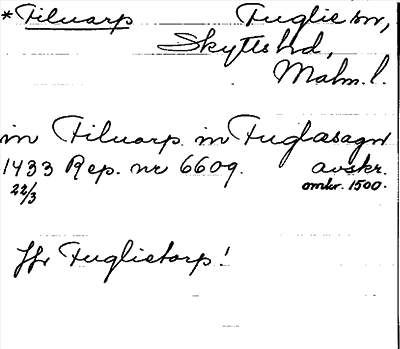 *Filuarp Fuglie sn,
Skytts hd,
Malm. l.
in Filuarp in Fuglæsagn
1433 Rep. nr 6609. avskr.
22/3 omkr. 1500.
Jfr Fuglietorp!